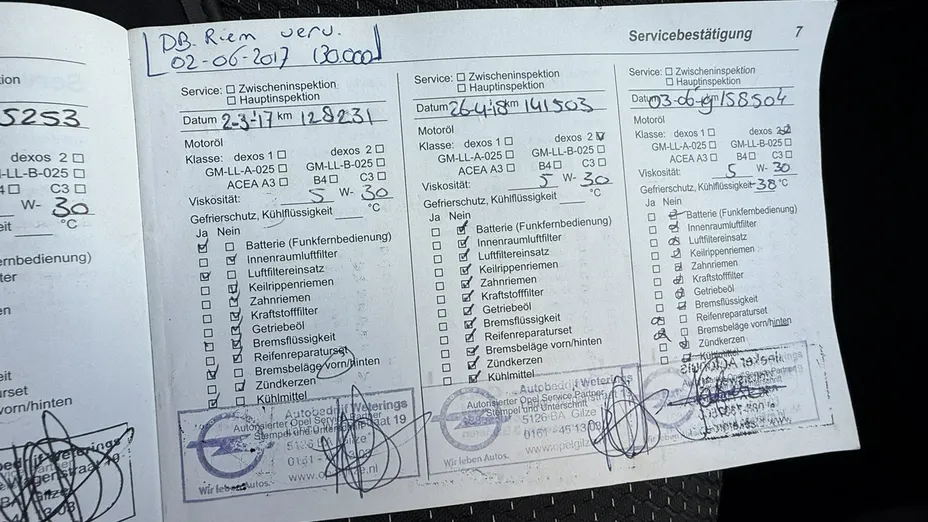 Servicebestätigung 7
DB. Riem verv.
02-06-2017 130.000
5253
dexos 2
LL-B-025
B4 C3
W- 30
°C
Service: Zwischeninspektion
Hauptinspektion
Datum 2-3-17 km 128231
Motoröl
Klasse: dexos 1 dexos 2
GM-LL-A-025 GM-LL-B-025
ACEA A3 B4 C3
Viskosität: 5 W- 30
Gefrierschutz, Kühlflüssigkeit °C
Ja Nein
Batterie (Funkfernbedienung)
Innenraumluftfilter
Luftfiltereinsatz
Keilrippenriemen
Zahnriemen
Kraftstofffilter
Getriebeöl
Bremsflüssigkeit
Reifenreparaturset
Bremsbeläge vorn/hinten
Zündkerzen
Kühlmittel
Autobedrijf Weterings
Autorisierter Opel Service Partner
Stempel und Unterschrift
Wir leben Autos.
Service: Zwischeninspektion
Hauptinspektion
Datum 26-4-18 km 141503
Motoröl
Klasse: dexos 1 dexos 2
GM-LL-A-025 GM-LL-B-025
ACEA A3 B4 C3
Viskosität: 5 W- 30
Gefrierschutz, Kühlflüssigkeit °C
Ja Nein
Batterie (Funkfernbedienung)
Innenraumluftfilter
Luftfiltereinsatz
Keilrippenriemen
Zahnriemen
Kraftstofffilter
Getriebeöl
Bremsflüssigkeit
Reifenreparaturset
Bremsbeläge vorn/hinten
Zündkerzen
Kühlmittel
Autobedrijf Weterings
Autorisierter Opel Service Partner
Stempel und Unterschrift
5126 BA Gilze
Wir leben Autos.
Service: Zwischeninspektion
Hauptinspektion
Datum 03-06-19 158504
Motoröl
Klasse: dexos 1 dexos 2
GM-LL-A-025 GM-LL-B-025
ACEA A3 B4 C3
Viskosität: 5 W- 30
Gefrierschutz, Kühlflüssigkeit -38 °C
Ja Nein
Batterie (Funkfernbedienung)
Innenraumluftfilter
Luftfiltereinsatz
Keilrippenriemen
Zahnriemen
Kraftstofffilter
Getriebeöl
Bremsflüssigkeit
Reifenreparaturset
Bremsbeläge vorn/hinten
Zündkerzen
Kühlmittel